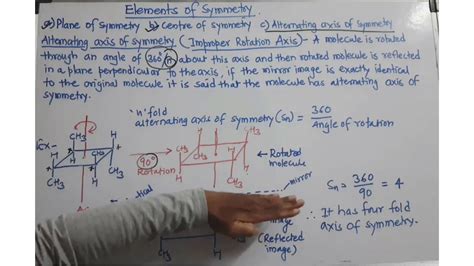 Elements of Symmetry.
a) Plane of Symmetry b) Centre of symmetry c) Alternating axis of Symmetry
Alternating axis of symmetry (Improper Rotation Axis)- A molecule is rotated
through an angle of 360°/n about this axis and then rotated molecule is reflected
in a plane perpendicular to the axis, if the mirror image is exactly identical
to the original molecule it is said that the molecule has alternating axis of
symmetry.
'n' fold
alternating axis of symmetry (Sn) = 360
Angle of rotation
Ex-
CH3
H
H
CH3
CH3
H
H
CH3
90°
Rotation
H
CH3
CH3
H
H
CH3
CH3
H
← Rotated
molecule
mirror
Sn = 360 = 4
90
∴ It has frur fold
axis of symmetry.
image
(Reflected
image)